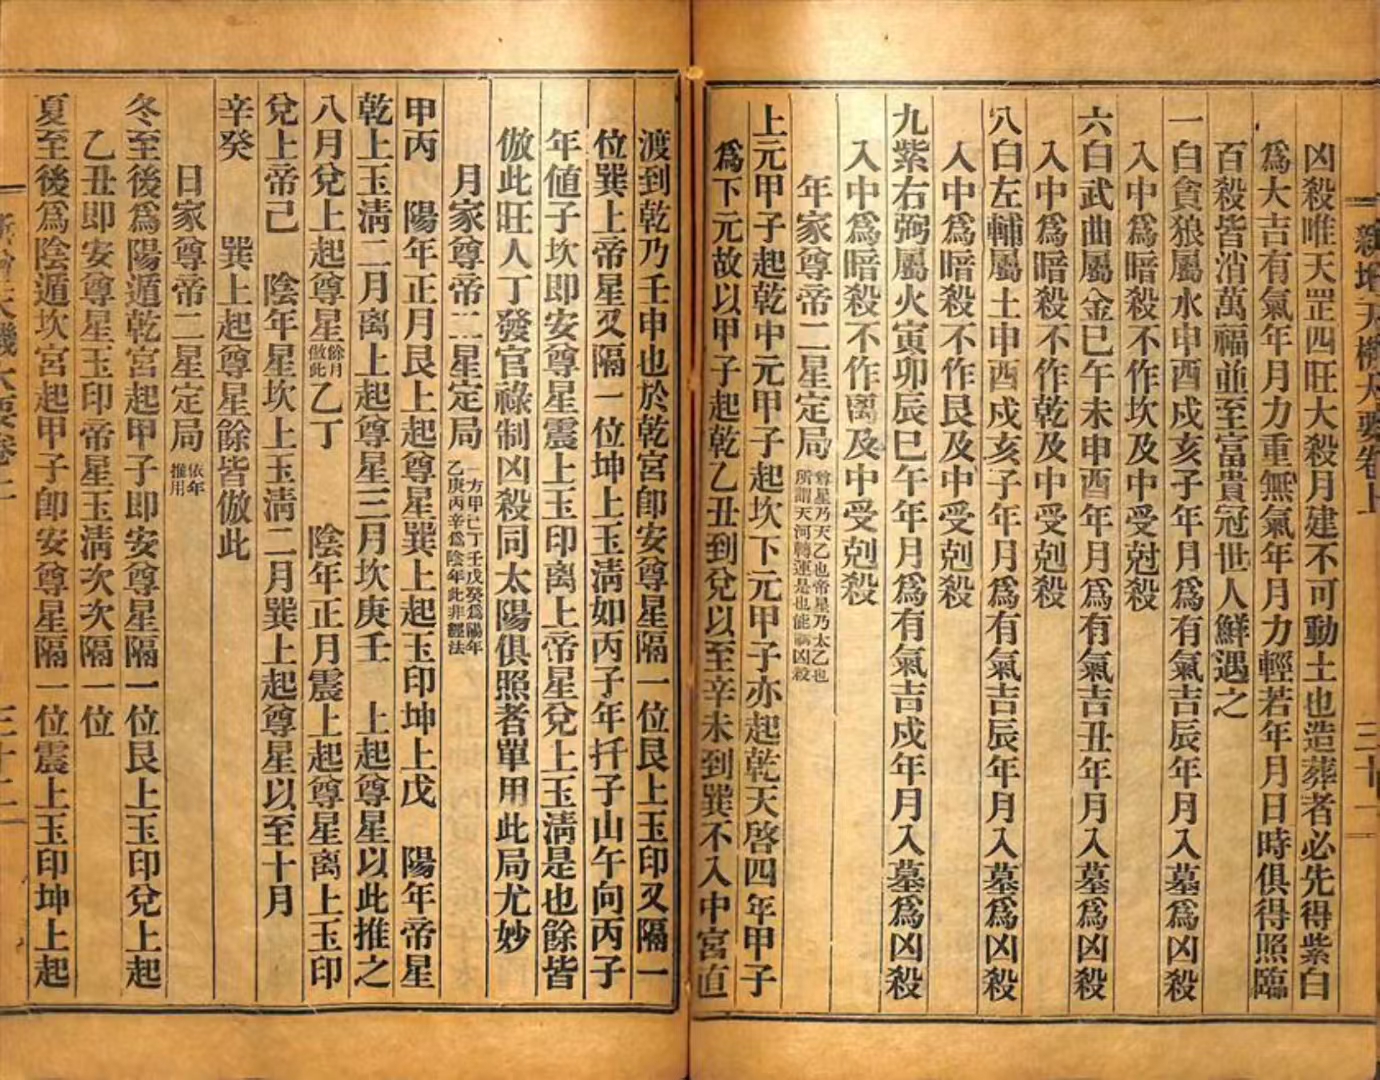 新增天機大要卷上
三十一
凶殺唯天罡四旺大殺月建不可動土也造葬者必先得紫白
為大吉有氣年月力重無氣年月力輕若年月日時俱得照臨
百殺皆消萬福並至富貴冠世人鮮遇之
一白貪狼屬水申酉戌亥子年月為有氣吉辰年月入墓為凶殺
入中為暗殺不作坎及中受尅殺
六白武曲屬金巳午未申酉年月為有氣吉丑年月入墓為凶殺
入中為暗殺不作乾及中受剋殺
八白左輔屬土申酉戌亥子年月為有氣吉辰年月入墓為凶殺
入中為暗殺不作艮及中受剋殺
九紫右弼屬火寅卯辰巳午年月為有氣吉戌年月入墓為凶殺
入中為暗殺不作离及中受剋殺
年家尊帝二星定局 尊星乃天乙也帝星乃太乙也 所謂天河轉運是也能制凶殺
上元甲子起乾中元甲子起坎下元甲子亦起乾天啓四年甲子
為下元故以甲子起乾乙丑到兌以至辛未到巽不入中宮直
渡到乾乃壬申也於乾宮卽安尊星隔一位艮上玉印又隔一
位巽上帝星又隔一位坤上玉淸如丙子年扦子山午向丙子
年値子坎卽安尊星震上玉印离上帝星兌上玉淸是也餘皆
倣此旺人丁發官祿制凶殺同太陽俱照者單用此局尤妙
月家尊帝二星定局 一方甲己丁壬戊癸為陽年 乙庚丙辛為陰年此非經法
甲丙 陽年正月艮上起尊星巽上起玉印坤上戊 陽年帝星
乾上玉淸二月离上起尊星三月坎庚壬 上起尊星以此推之
八月兌上起尊星 餘月倣此 乙丁 陰年正月震上起尊星离上玉印
兌上帝己 陰年星坎上玉淸二月巽上起尊星以至十月
辛癸 巽上起尊星餘皆倣此
日家尊帝二星定局 依年推用
冬至後為陽遁乾宮起甲子即安尊星隔一位艮上玉印兌上起
乙丑即安尊星玉印帝星玉淸次次隔一位
夏至後為陰遁坎宮起甲子卽安尊星隔一位震上玉印坤上起
三十二